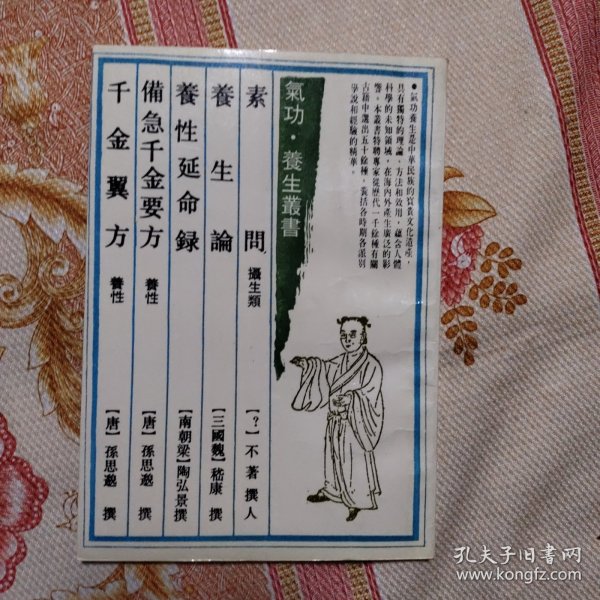 ●氣功養生是中華民族的寶貴文化遺産，
具有獨特的理論、方法和效用，蘊含人體
科學的未知領域，在海內外產生廣泛的影
響。本叢書特聘專家從歷代一千餘種有關
古籍中選出五十餘種，囊括各時期各派别
學說和經驗的精華。
氣功·養生叢書
素問 攝生類 【？】不著撰人
養生論 【三國魏】嵇康 撰
養性延命録 【南朝梁】陶弘景撰
備急千金要方 養性 【唐】孫思邈 撰
千金翼方 養性 【唐】孫思邈 撰
孔夫子旧书网
www.kongfz.com